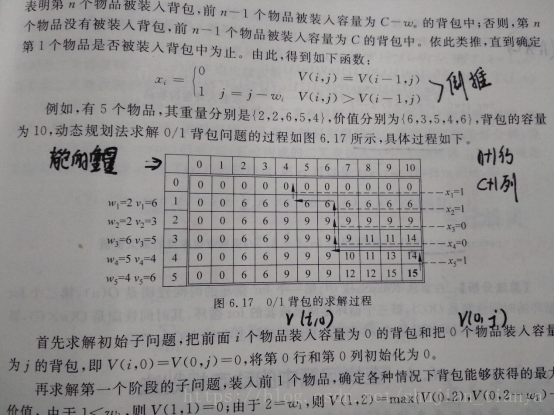 表明第 n 个物品被装入背包,前 n−1 个物品被装入容量为 C−wₙ 的背包中;否则,第 n
个物品没有被装入背包,前 n−1 个物品被装入容量为 C 的背包中。依此类推,直到确定
第 1 个物品是否被装入背包中为止。由此,得到如下函数:
0 V(i,j) = V(i−1,j)
xᵢ = {
1 j = j − wᵢ V(i,j) > V(i−1,j)
倒推
例如,有 5 个物品,其重量分别是{2,2,6,5,4},价值分别为{6,3,5,4,6},背包的容量
为 10,动态规划法求解 0/1 背包问题的过程如图 6.17 所示,具体过程如下。
0 1 2 3 4 5 6 7 8 9 10
0 0 0 0 0 0 0 0 0 0 0 0
w₁=2 v₁=6 1 0 0 6 6 6 6 6 6 6 6 6 x₁=1
w₂=2 v₂=3 2 0 0 6 6 9 9 9 9 9 9 9 x₂=1
w₃=6 v₃=5 3 0 0 6 6 9 9 9 9 11 11 14 x₃=0
w₄=5 v₄=4 4 0 0 6 6 9 9 9 10 11 13 14 x₄=0
w₅=4 v₅=6 5 0 0 6 6 9 9 9 12 12 15 15 x₅=1
图 6.17 0/1 背包的求解过程
V(i,0) V(0,j)
首先求解初始子问题,把前面 i 个物品装入容量为 0 的背包和把 0 个物品装入容量
为 j 的背包,即 V(i,0)=V(0,j)=0,将第 0 行和第 0 列初始化为 0。
再求解第一个阶段的子问题,装入前 1 个物品,确定各种情况下背包能够获得的最
价值,由于 1<w₁,则 V(1,1)=0;由于 2=w₁,则 V(1,2)=max{V(0,2),V(0,2−w₁)